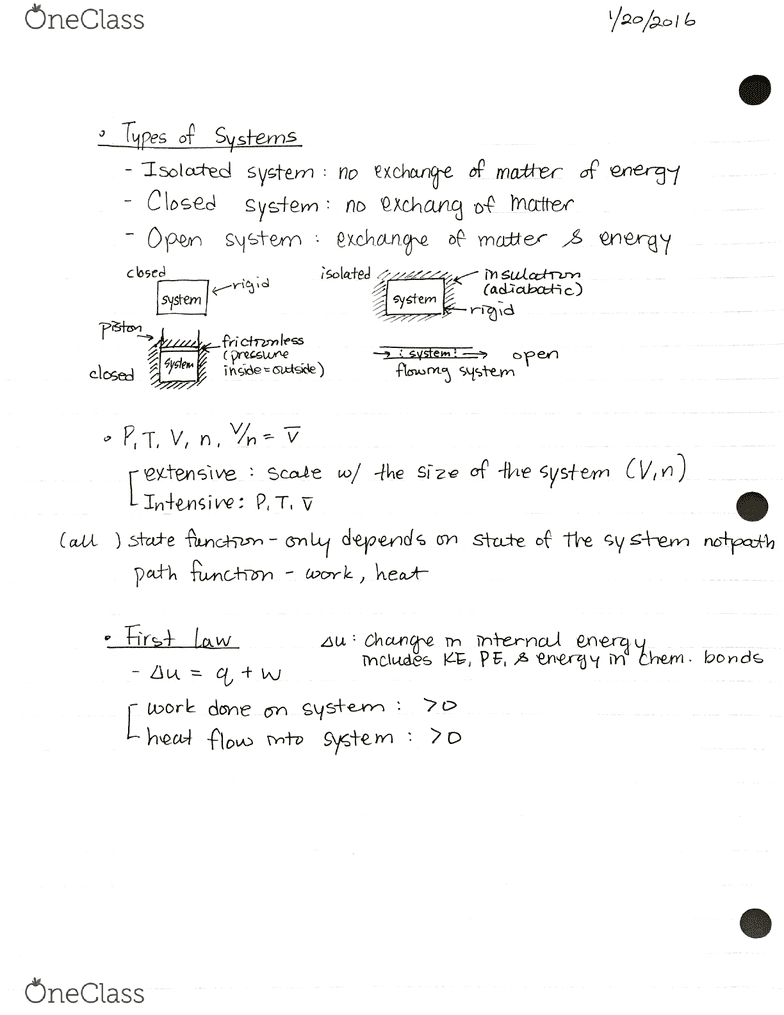 OneClass
1/20/2016
• Types of Systems
- Isolated system : no exchange of matter of energy
- Closed system : no exchang of matter
- Open system : exchange of matter & energy
closed
system
rigid
isolated
system
insulation
(adiabatic)
rigid
piston
closed
system
frictionless
(pressure
inside=outside)
system
open
flowing system
• P, T, V, n, V/n = V̅
extensive : scale w/ the size of the system (V, n)
Intensive : P, T, V̅
(all ) state function - only depends on state of the system not path
path function - work, heat
• First law
- Δu = q + w
Δu : change in internal energy
includes KE, PE, & energy in chem. bonds
work done on system : >0
heat flow into system : >0
OneClass